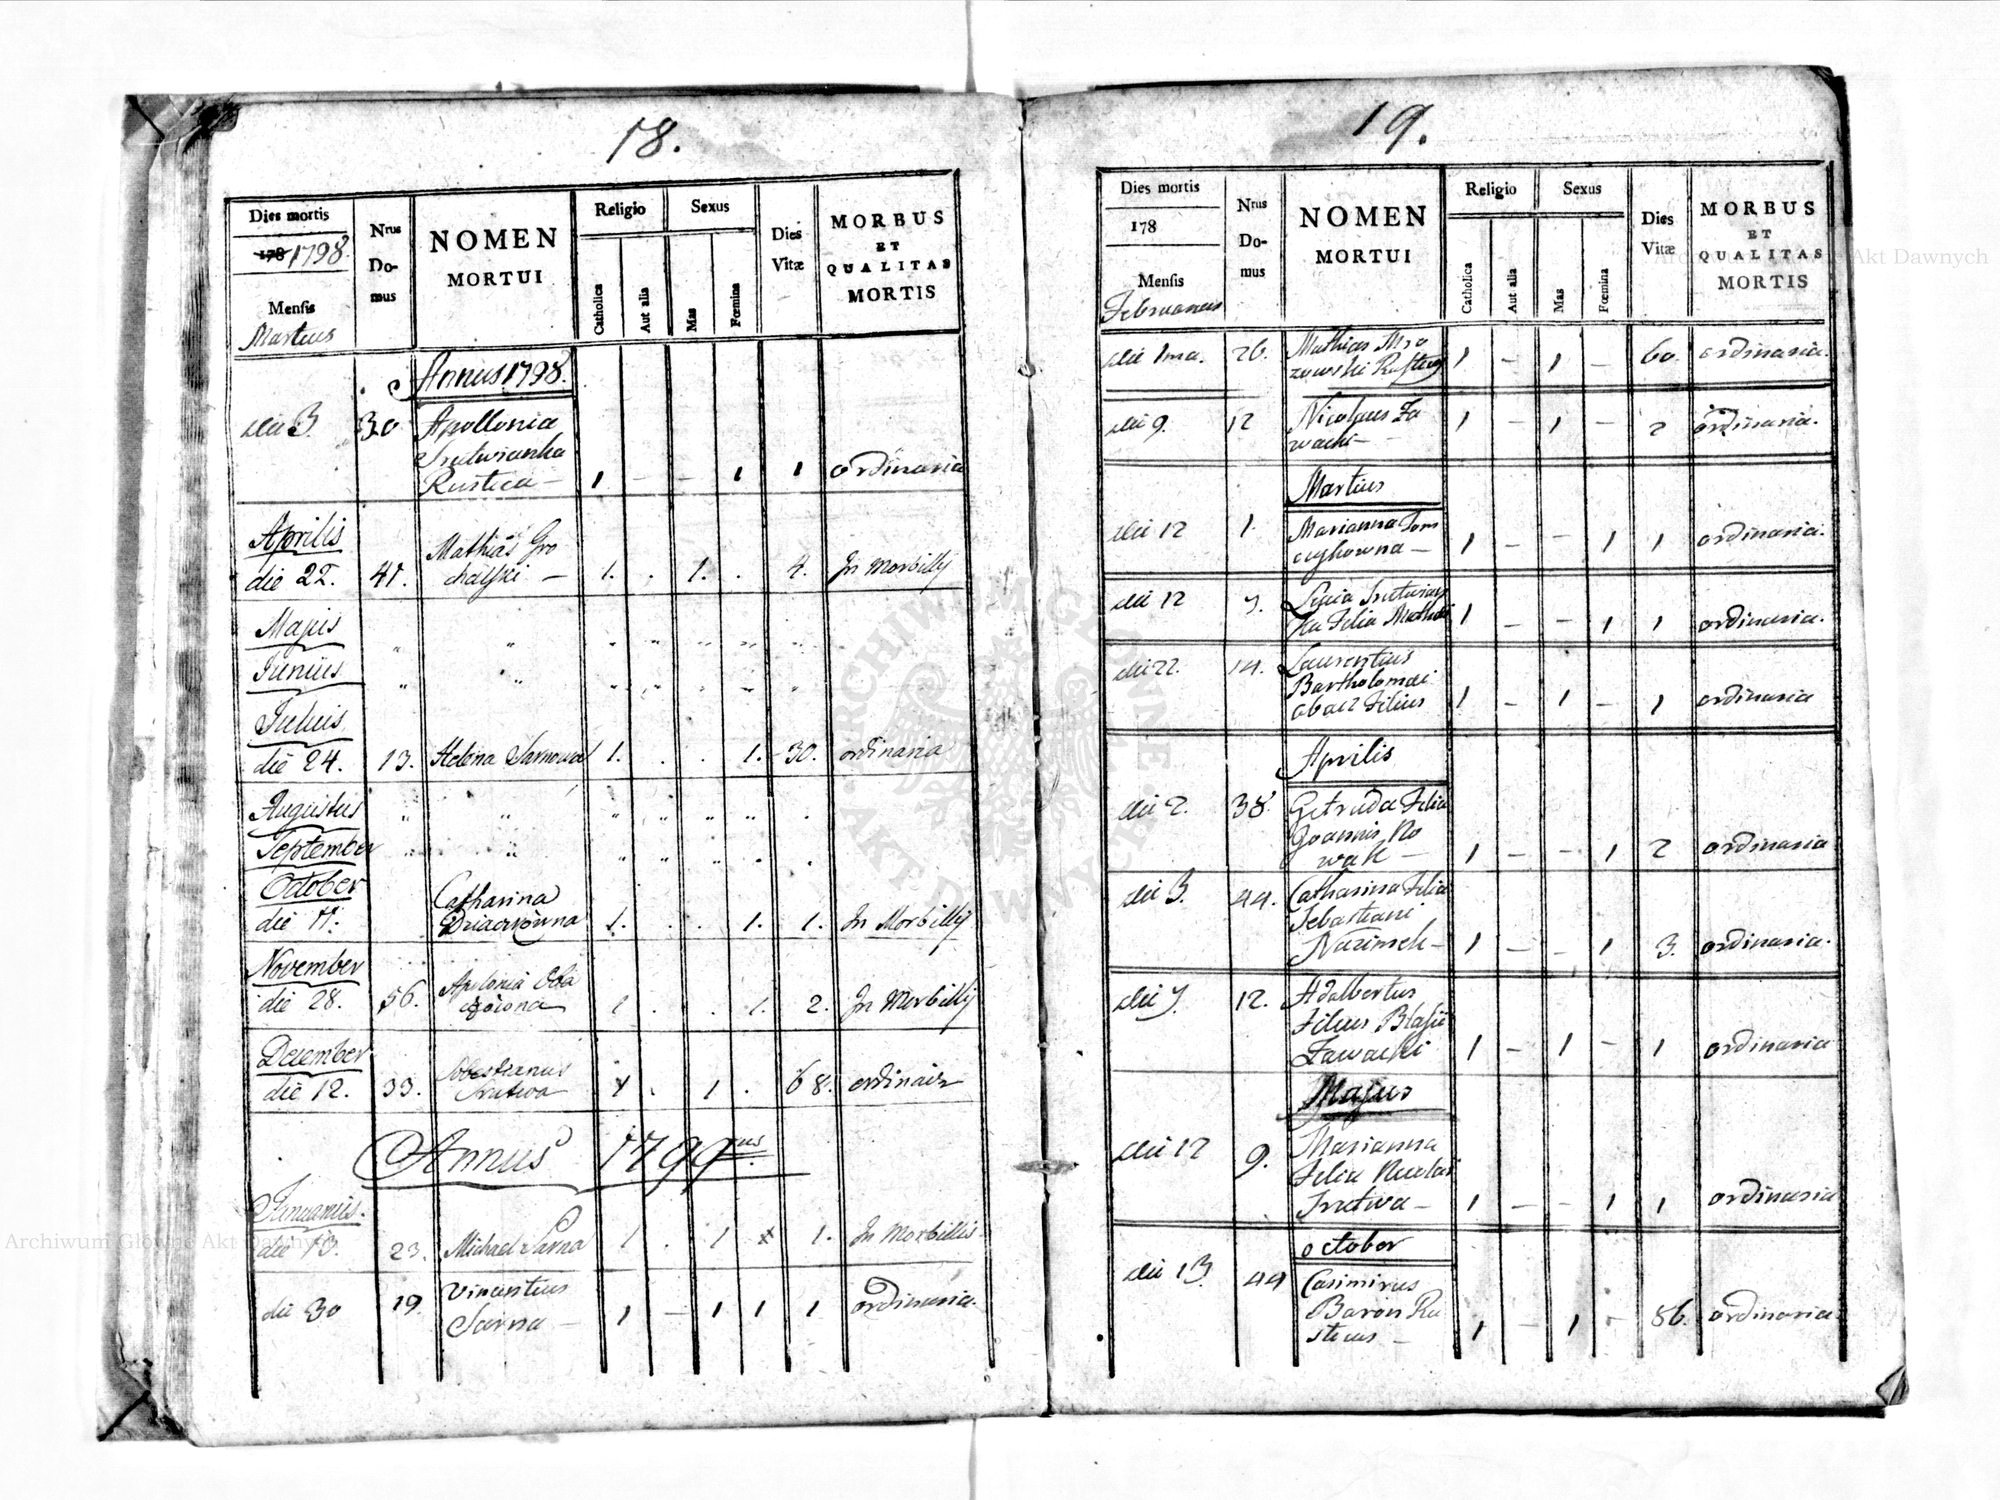 18.
Dies mortis
178 1798.
Mensis
Martius
Nrus Do- mus
NOMEN MORTUI
Religio
Catholica
Aut alia
Sexus
Mas
Fœmina
Dies Vitæ
MORBUS ET QUALITAS MORTIS
Annus 1798.
die 3. 30 Apollonia
Rustica — 1 - - 1 1 ordinaria
Aprilis
Mathias Gro
die 22. 41. chalski — 1. . 1. . 4. In Morbilly
Majus
Junius
Julius
die 24. 13. Helena Sarnowa 1. . . 1. 30. ordinaria
Augustus
September
October
Catharina
die 11. 1. . . 1. 1. In Morbilly
November
Apolonia
die 28. 56. 1 . . 1. 2. In Morbilly
December
die 12. 33. 1 . 1 . 68.
Annus 1799
Januarius.
die 13. 23. Michael Sarna 1 . 1 1. In Morbillis
die 30 19. Vincentius
Sarna — 1 — 1 1 1 ordinaria.
19.
Dies mortis
178
Mensis
Februarius
Nrus Do- mus
NOMEN MORTUI
Religio
Catholica
Aut alia
Sexus
Mas
Fœmina
Dies Vitæ
MORBUS ET QUALITAS MORTIS
die 1ma. 26. Mathias Mro
zowski 1 — 1 — 60. ordinaria.
die 9. 12 Nicolaus Za
wacki — 1 — 1 — 2 ordinaria.
Martius
die 12 1. Marianna Tom
1 — — 1 1 ordinaria.
die 12 7.
Filia 1 — — 1 1 ordinaria.
die 22. 14. Laurentius
Bartholomæi
Filius 1 — 1 — 1 ordinaria
Aprilis
die 2. 38. Getruda Filia
Joannis No
wak — 1 — — 1 2 ordinaria
die 3. 44. Catharina Filia
Sebastiani
1 — — 1 3. ordinaria.
die 7. 12. Adalbertus
Filius Blasii
Zawacki 1 — 1 — 1 ordinaria
Majus
die 12 9. Marianna
Filia Nicolai
Srutwa — 1 — — 1 1 ordinaria
October
die 13 44 Casimirus
Baron Ru
sticus — 1 — 1 — 56. ordinaria.
ARCHIWUM GŁÓWNE AKT DAWNYCH
Archiwum Główne Akt Dawnych
Archiwum Główne Akt Dawnych